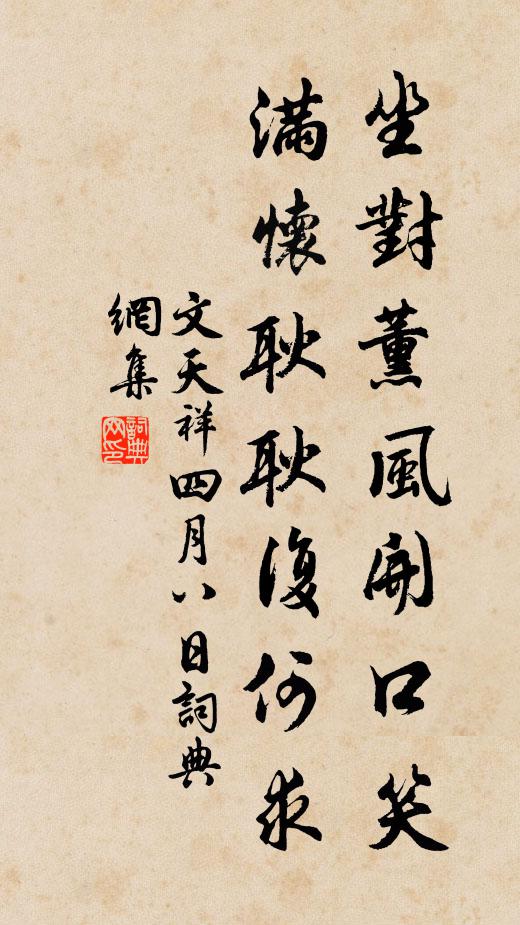 坐對薰風開口笑
滿懷耿耿復何求
文天祥四月八日詞典
網集
詞典网印